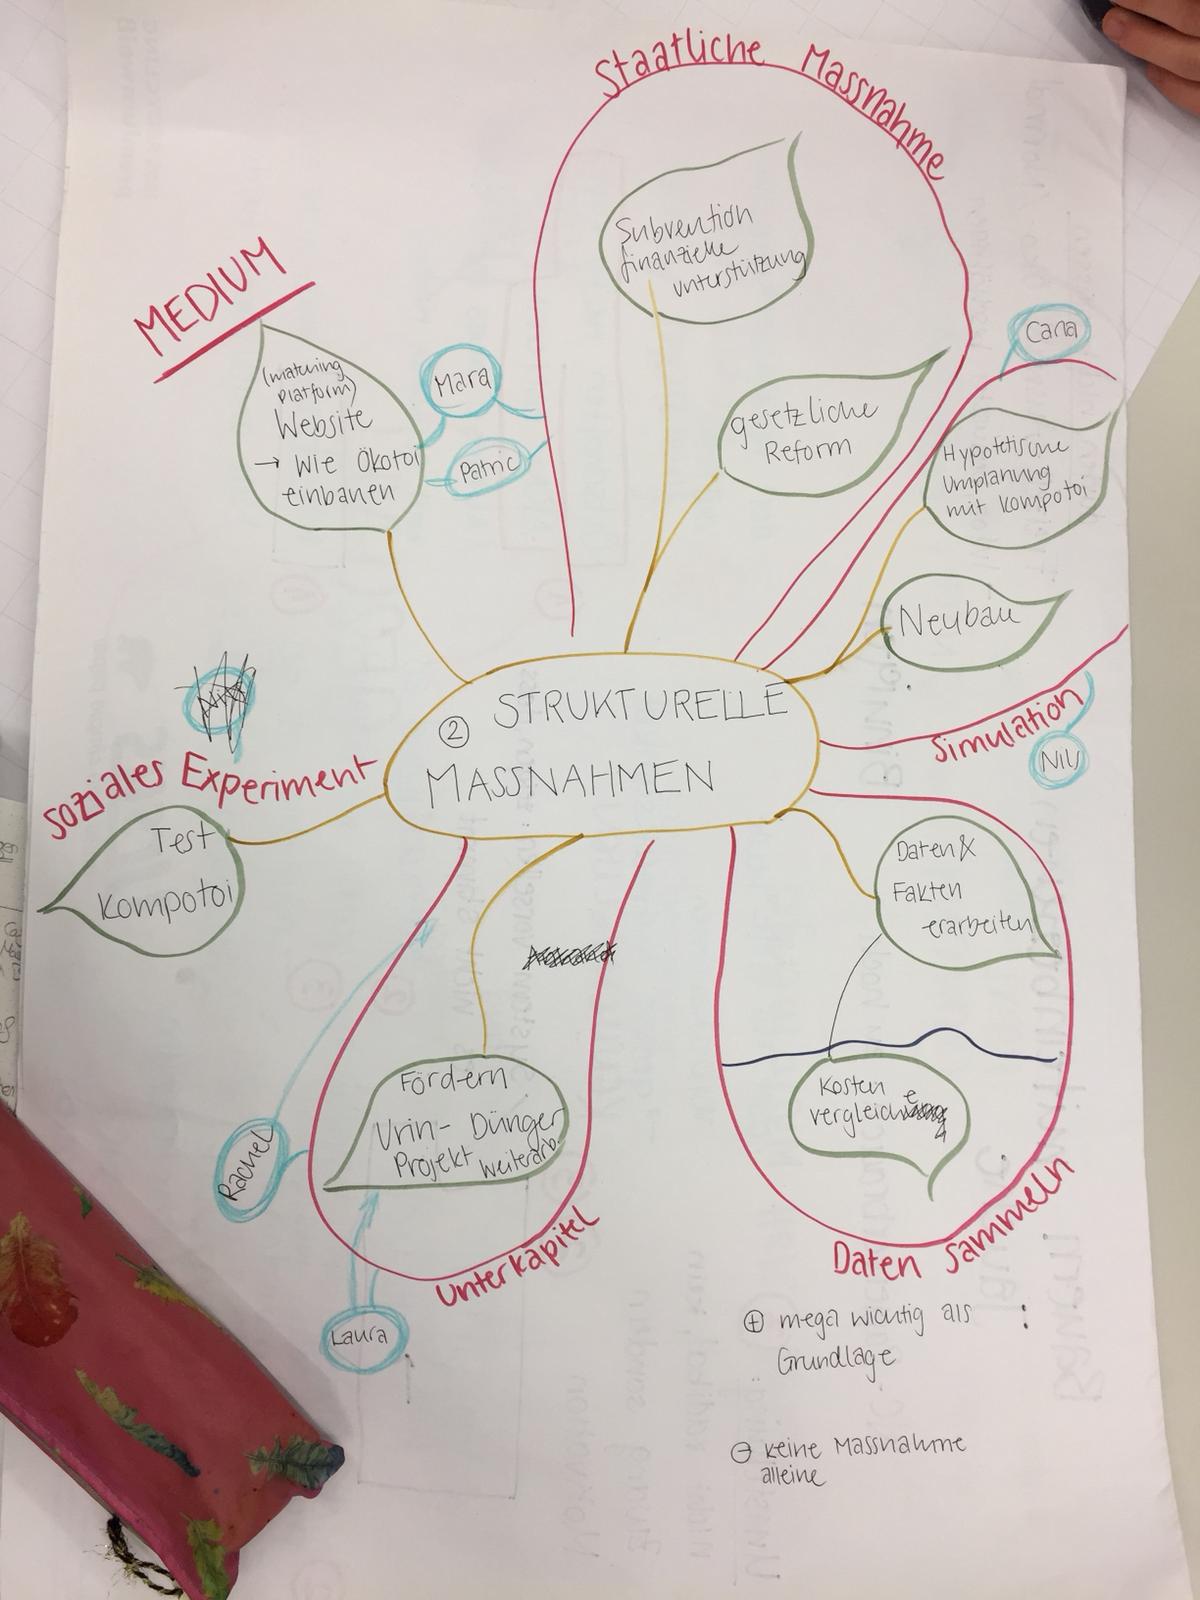 Staatliche Massnahme
Subvention
finanzielle
unterstützung
MEDIUM
(matching
platform)
Website
→ Wie Ökotoi
einbauen
Mara
Patric
gesetzliche
Reform
Hypotetische
Umplanung
mit Kompotoi
Neubau
Simulation
② STRUKTURELLE
MASSNAHMEN
soziales Experiment
Test
Kompotoi
Daten &
Fakten
erarbeiten
Kosten
vergleiche
Daten Sammeln
Fördern
Urin- Dünger
Projekt weiterarb.
Rachel
Unterkapitel
Laura
⊕ mega wichtig als
Grundlage
⊖ keine Massnahme
alleine